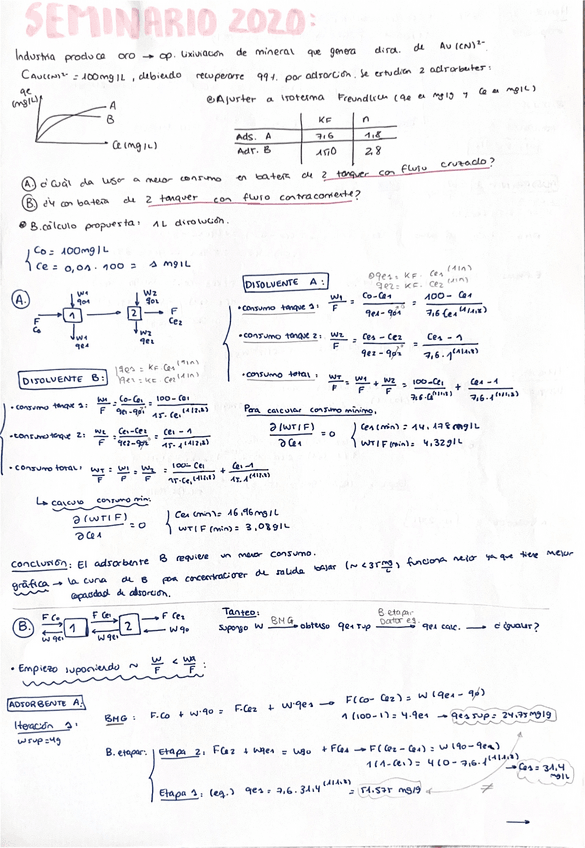 SEMINARIO 2020:
Industria produce oro → op. lixiviación de mineral que genera disol. de Au(CN)²⁻
C Au(CN)²⁻ = 100 mg/L, debiendo recuperarse 99% por adsorción. Se estudian 2 adsorbentes:
qe (mg/L)
A
B
Ce (mg/L)
Ajustar a isoterma Freundlich (qe en mg/g y Ce en mg/L)
KF n
Ads. A 7,6 1,8
Ads. B 15,0 2,8
A. ¿Cuál da lugar a menor consumo en batería de 2 tanques con flujo cruzado?
B. ¿Y con batería de 2 tanques con flujo contracorriente?
B. cálculo propuesta: 1L disolución.
Co = 100 mg/L
Ce = 0,01 · 100 = 1 mg/L
A.
W1 q01
W2 q02
F Co → 1 → 2 → F Ce2
W1 qe1
W2 qe2
DISOLVENTE A:
qe1 = KF · Ce1^(1/n)
qe2 = KF · Ce2^(1/n)
• consumo tanque 1: W1/F = (Co-Ce1)/(qe1-q01) = (100-Ce1)/(7,6 Ce1^(1/1,8))
• consumo tanque 2: W2/F = (Ce1-Ce2)/(qe2-q02) = (Ce1-1)/(7,6 · 1^(1/1,8))
• consumo total: WT/F = W1/F + W2/F = (100-Ce1)/(7,6·Ce1^(1/1,8)) + (Ce1-1)/(7,6·1^(1/1,8))
Para calcular consumo mínimo,
∂(WT/F)/∂Ce1 = 0
Ce1(min) = 14,178 mg/L
WT/F(min) = 4,32 g/L
DISOLVENTE B:
qe1 = KF · Ce1^(1/n)
qe2 = KF · Ce2^(1/n)
• consumo tanque 1: W1/F = (Co-Ce1)/(qe1-q01) = (100-Ce1)/(15·Ce1^(1/2,8))
• consumo tanque 2: W2/F = (Ce1-Ce2)/(qe2-q02) = (Ce1-1)/(15·1^(1/2,8))
• consumo total: WT/F = W1/F = W2/F = (100-Ce1)/(15·Ce1^(1/2,8)) + (Ce1-1)/(15·1^(1/2,8))
↳ calculo consumo min:
∂(WT/F)/∂Ce1 = 0
Ce1(min) = 16,96 mg/L
WT/F(min) = 3,08 g/L
Conclusión: El adsorbente B requiere un menor consumo.
gráfica → la curva de B para concentraciones de salida bajas (~<35 mg/L) funciona mejor ya que tiene mejor
capacidad de adsorción.
B.
F Co → 1 F Ce1 → 2 → F Ce2
W qe1 W qe2 W q0
Tanteo:
supongo W BMG→ obtengo qe1 sup B etapas Datos eq. → qe1 calc. → ¿iguales?
• Empiezo suponiendo ~ W/F < WA/F:
ADSORBENTE A:
Iteración 1:
Wsup = 4g
BMG: F·Co + W·q0 = F·Ce2 + W·qe1 → F(Co-Ce2) = W(qe1-q0)
1(100-1) = 4·qe1 → qe1 sup = 24,75 mg/g
B. etapas:
Etapa 2: F Ce2 + W qe2 = W q0 + F Ce1 → F(Ce2-Ce1) = W(q0-qe2)
1(1-Ce1) = 4(0-7,6·1^(1/1,8)) → Ce1 = 31,4 mg/L
Etapa 1: (eq.) qe1 = 7,6·31,4^(1/1,8) = 51,575 mg/g
≠
→